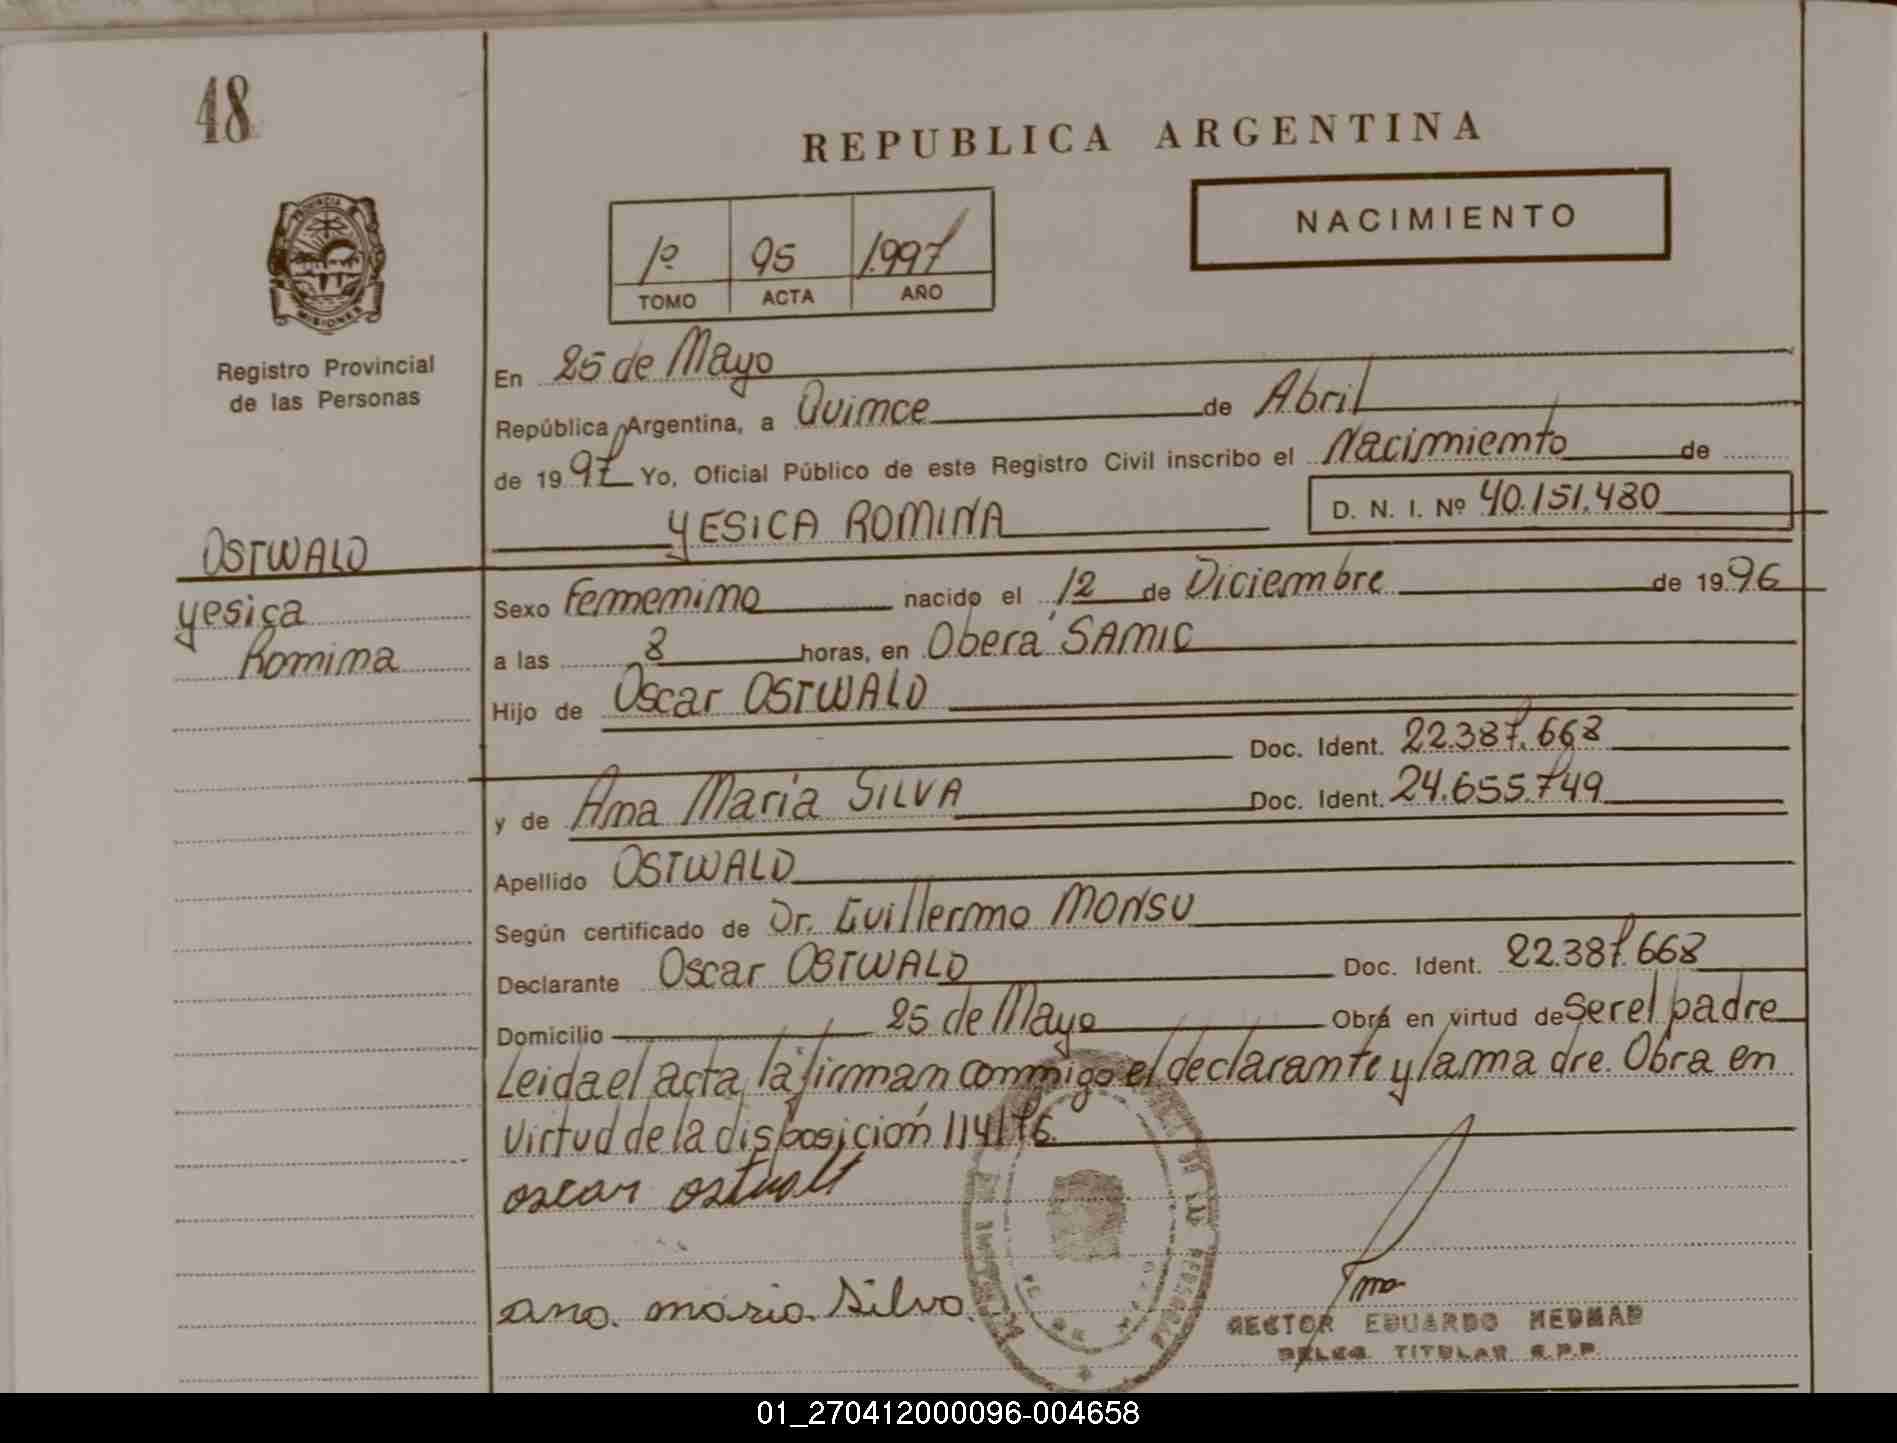 48
REPUBLICA ARGENTINA
NACIMIENTO
1º 95 1.997
TOMO ACTA AÑO
PROVINCIA
MISIONES
Registro Provincial
de las Personas
En 25 de Mayo
República Argentina, a Quince de Abril
de 1997 Yo, Oficial Público de este Registro Civil inscribo el Nacimiento de
YESICA ROMINA D. N. I. Nº 40.151.480
OSTWALD
Yesica
Romina
Sexo Femenino nacido el 12 de Diciembre de 1996
a las 8 horas, en Oberá SAMIC
Hijo de Oscar OSTWALD
Doc. Ident. 22.387.668
y de Ana María SILVA Doc. Ident. 24.655.749
Apellido OSTWALD
Según certificado de Dr. Guillermo MONSU
Declarante Oscar OSTWALD Doc. Ident. 22.387.668
Domicilio 25 de Mayo Obra en virtud de ser el padre
Leida el acta, la firman conmigo el declarante y la madre. Obra en
virtud de la disposición 114/76.
oscar ostwalt
ana maria Silva.
HECTOR EDUARDO
DELEG. TITULAR R.P.P.
01_270412000096-004658